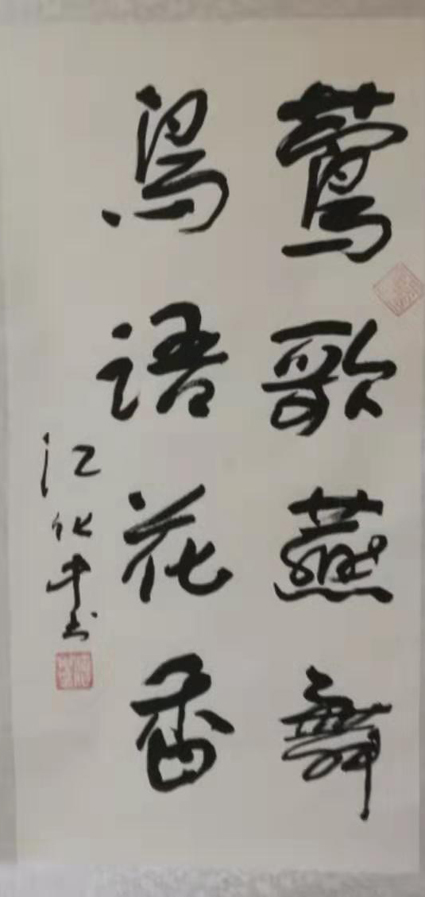 莺歌燕舞
鸟语花香
江化中书